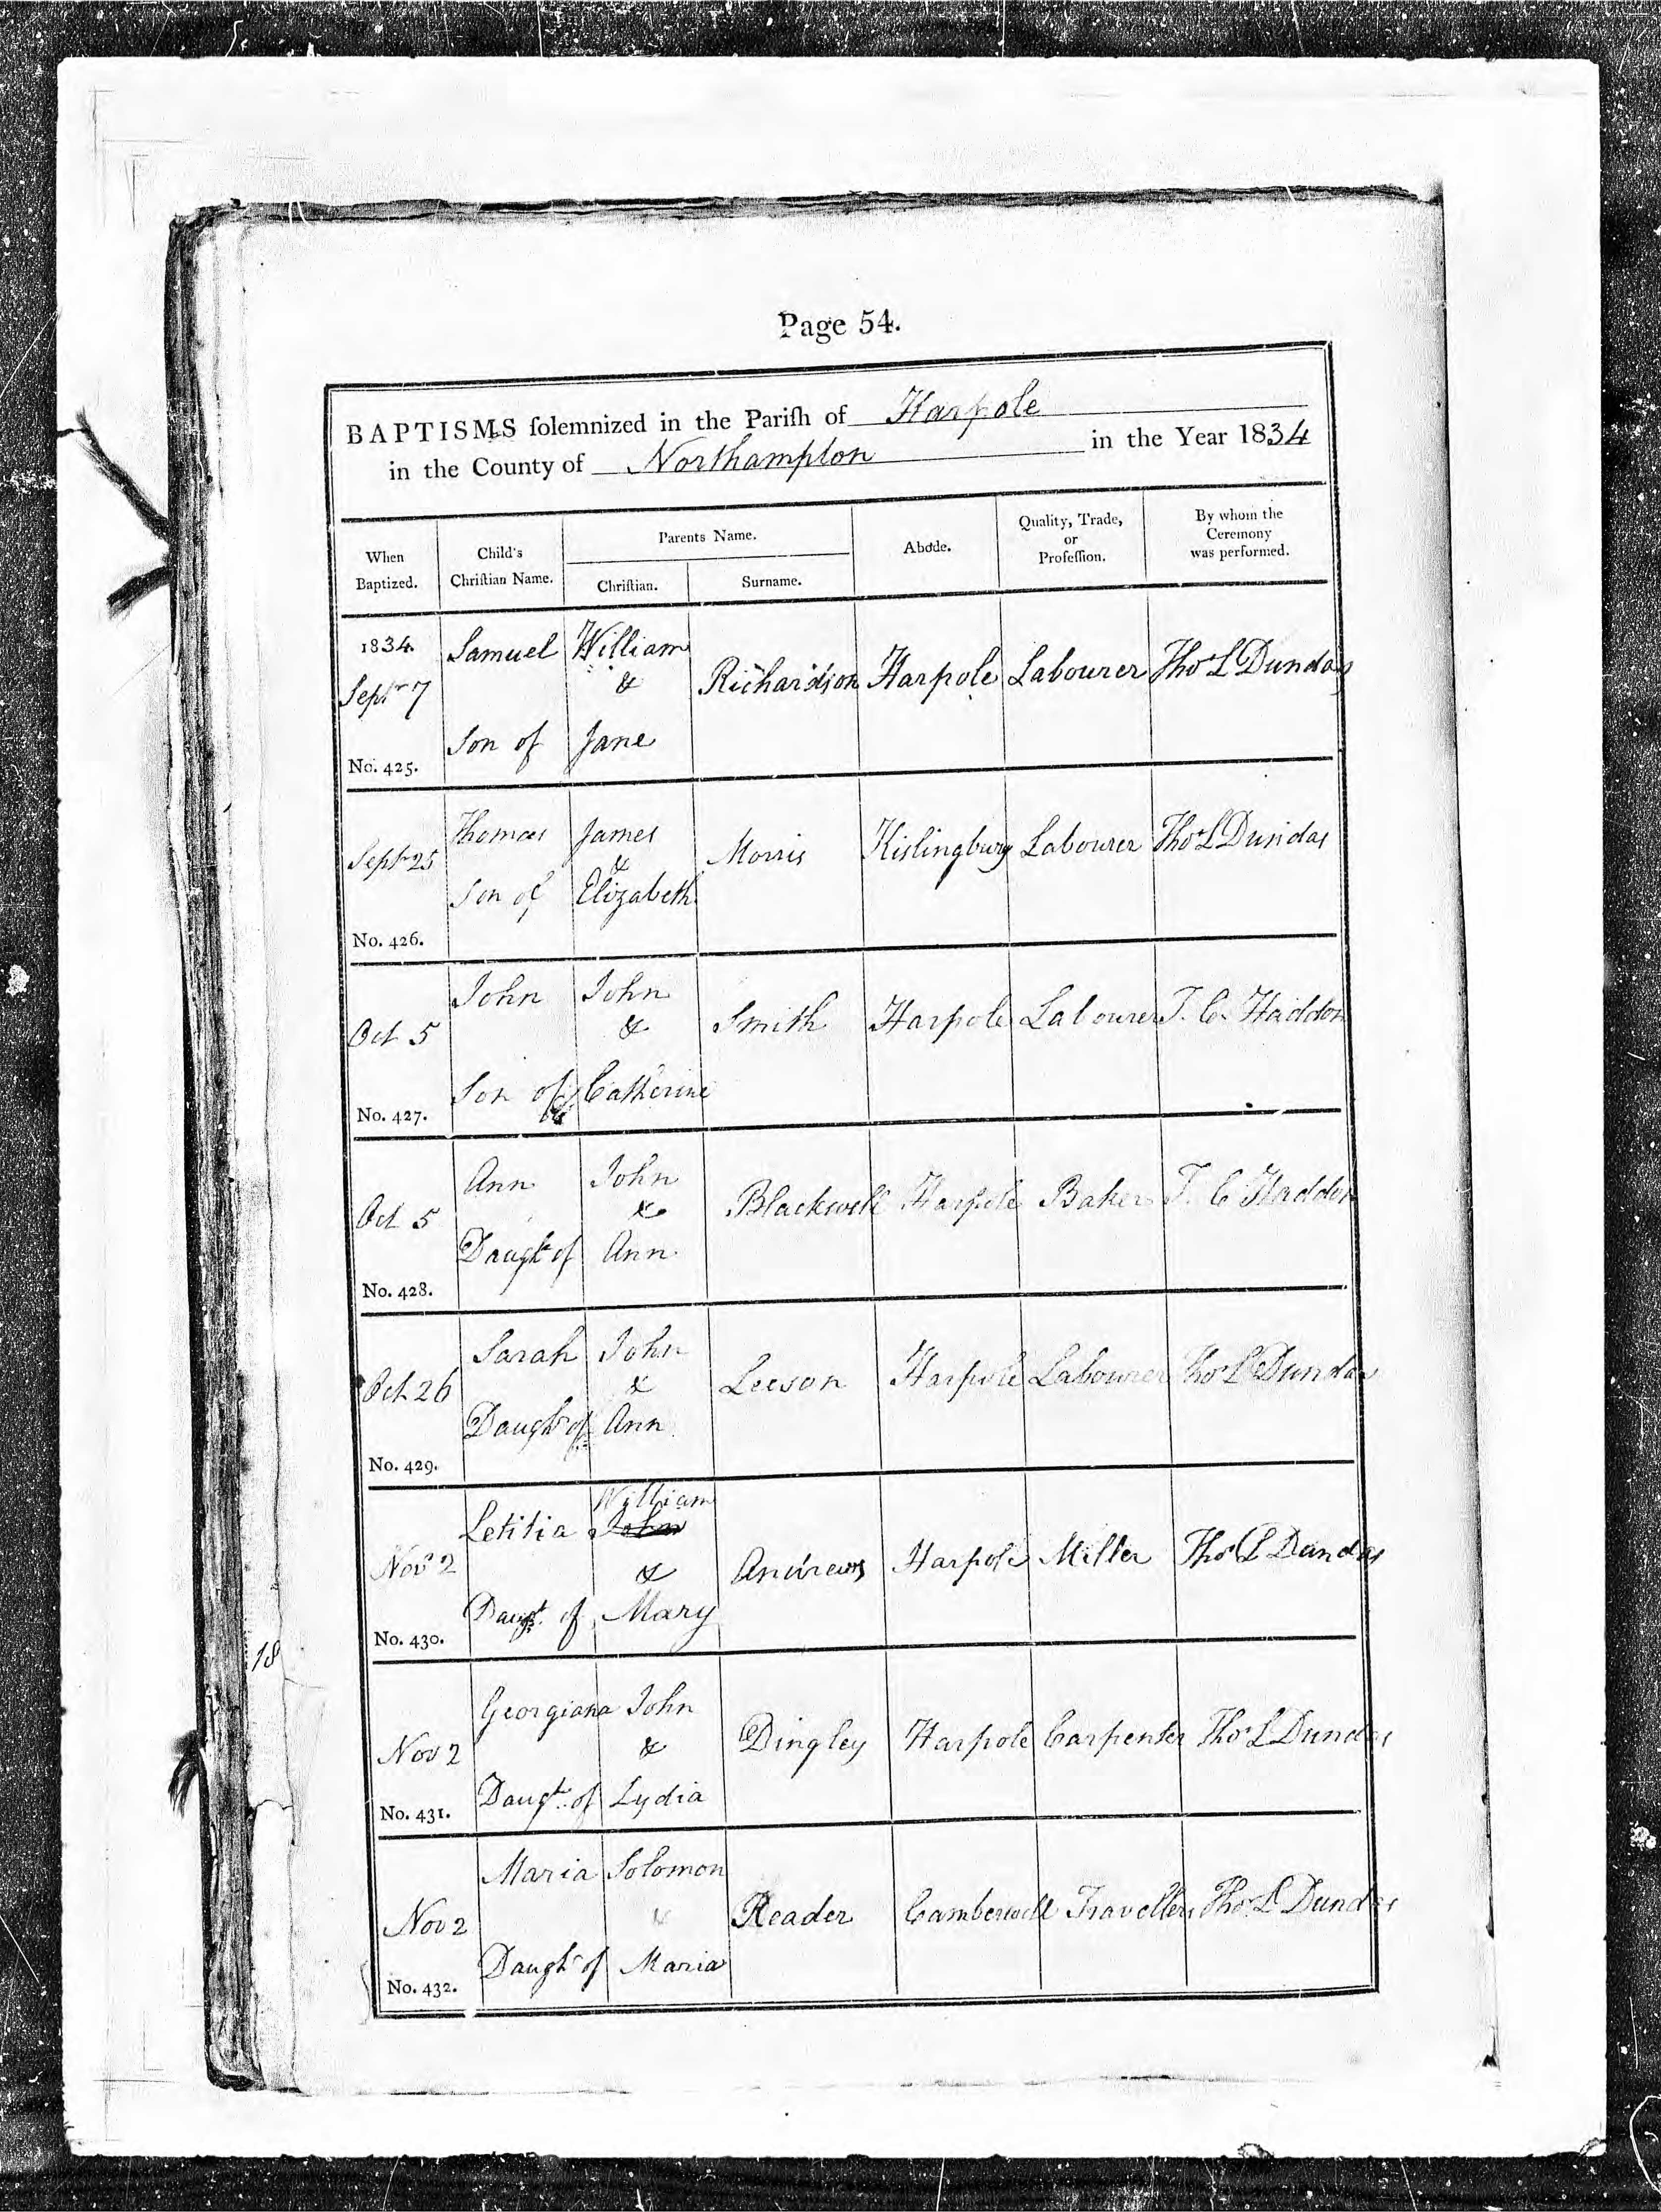 Page 54.
BAPTISMS ſolemnized in the Pariſh of Harpole
in the County of Northampton in the Year 1834
When Baptized. Child's Chriſtian Name. Parents Name. Chriſtian. Surname. Abode. Quality, Trade, or Profeſſion. By whom the Ceremony was performed.
1834. Samuel William
Sepr 7 & Richardson Harpole Labourer Thos L Dundas
Son of Jane
No. 425.
Thomas James
Sepr 25 & Morris Kislingbury Labourer Thos L Dundas
Son of Elizabeth
No. 426.
John John
Oct 5 & Smith Harpole Labourer T. C. Haddon
Son of Catherine
No. 427.
Ann John
Oct 5 & Blackwell Harpole Baker T. C Haddon
Daught of Ann
No. 428.
Sarah John
Oct 26 & Leeson Harpole Labourer Thos L Dundas
Daughr of Ann
No. 429.
William
Letitia John
Novr 2 & Andrews Harpole Miller Thos L Dundas
Daugt. of Mary
No. 430.
Georgiana John
Nov 2 & Dingley Harpole Carpenter Thos L Dundas
Daugt. of Lydia
No. 431.
18
Maria Solomon
Nov 2 & Reader Camberwell Travellers Thos L Dundas
Daughr of Maria
No. 432.